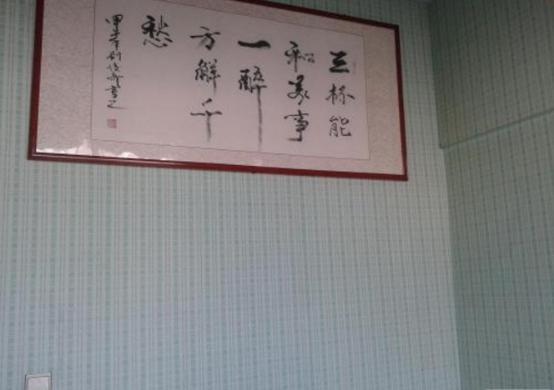 三杯能
和萬事
一醉
方解千
愁
甲午 书之